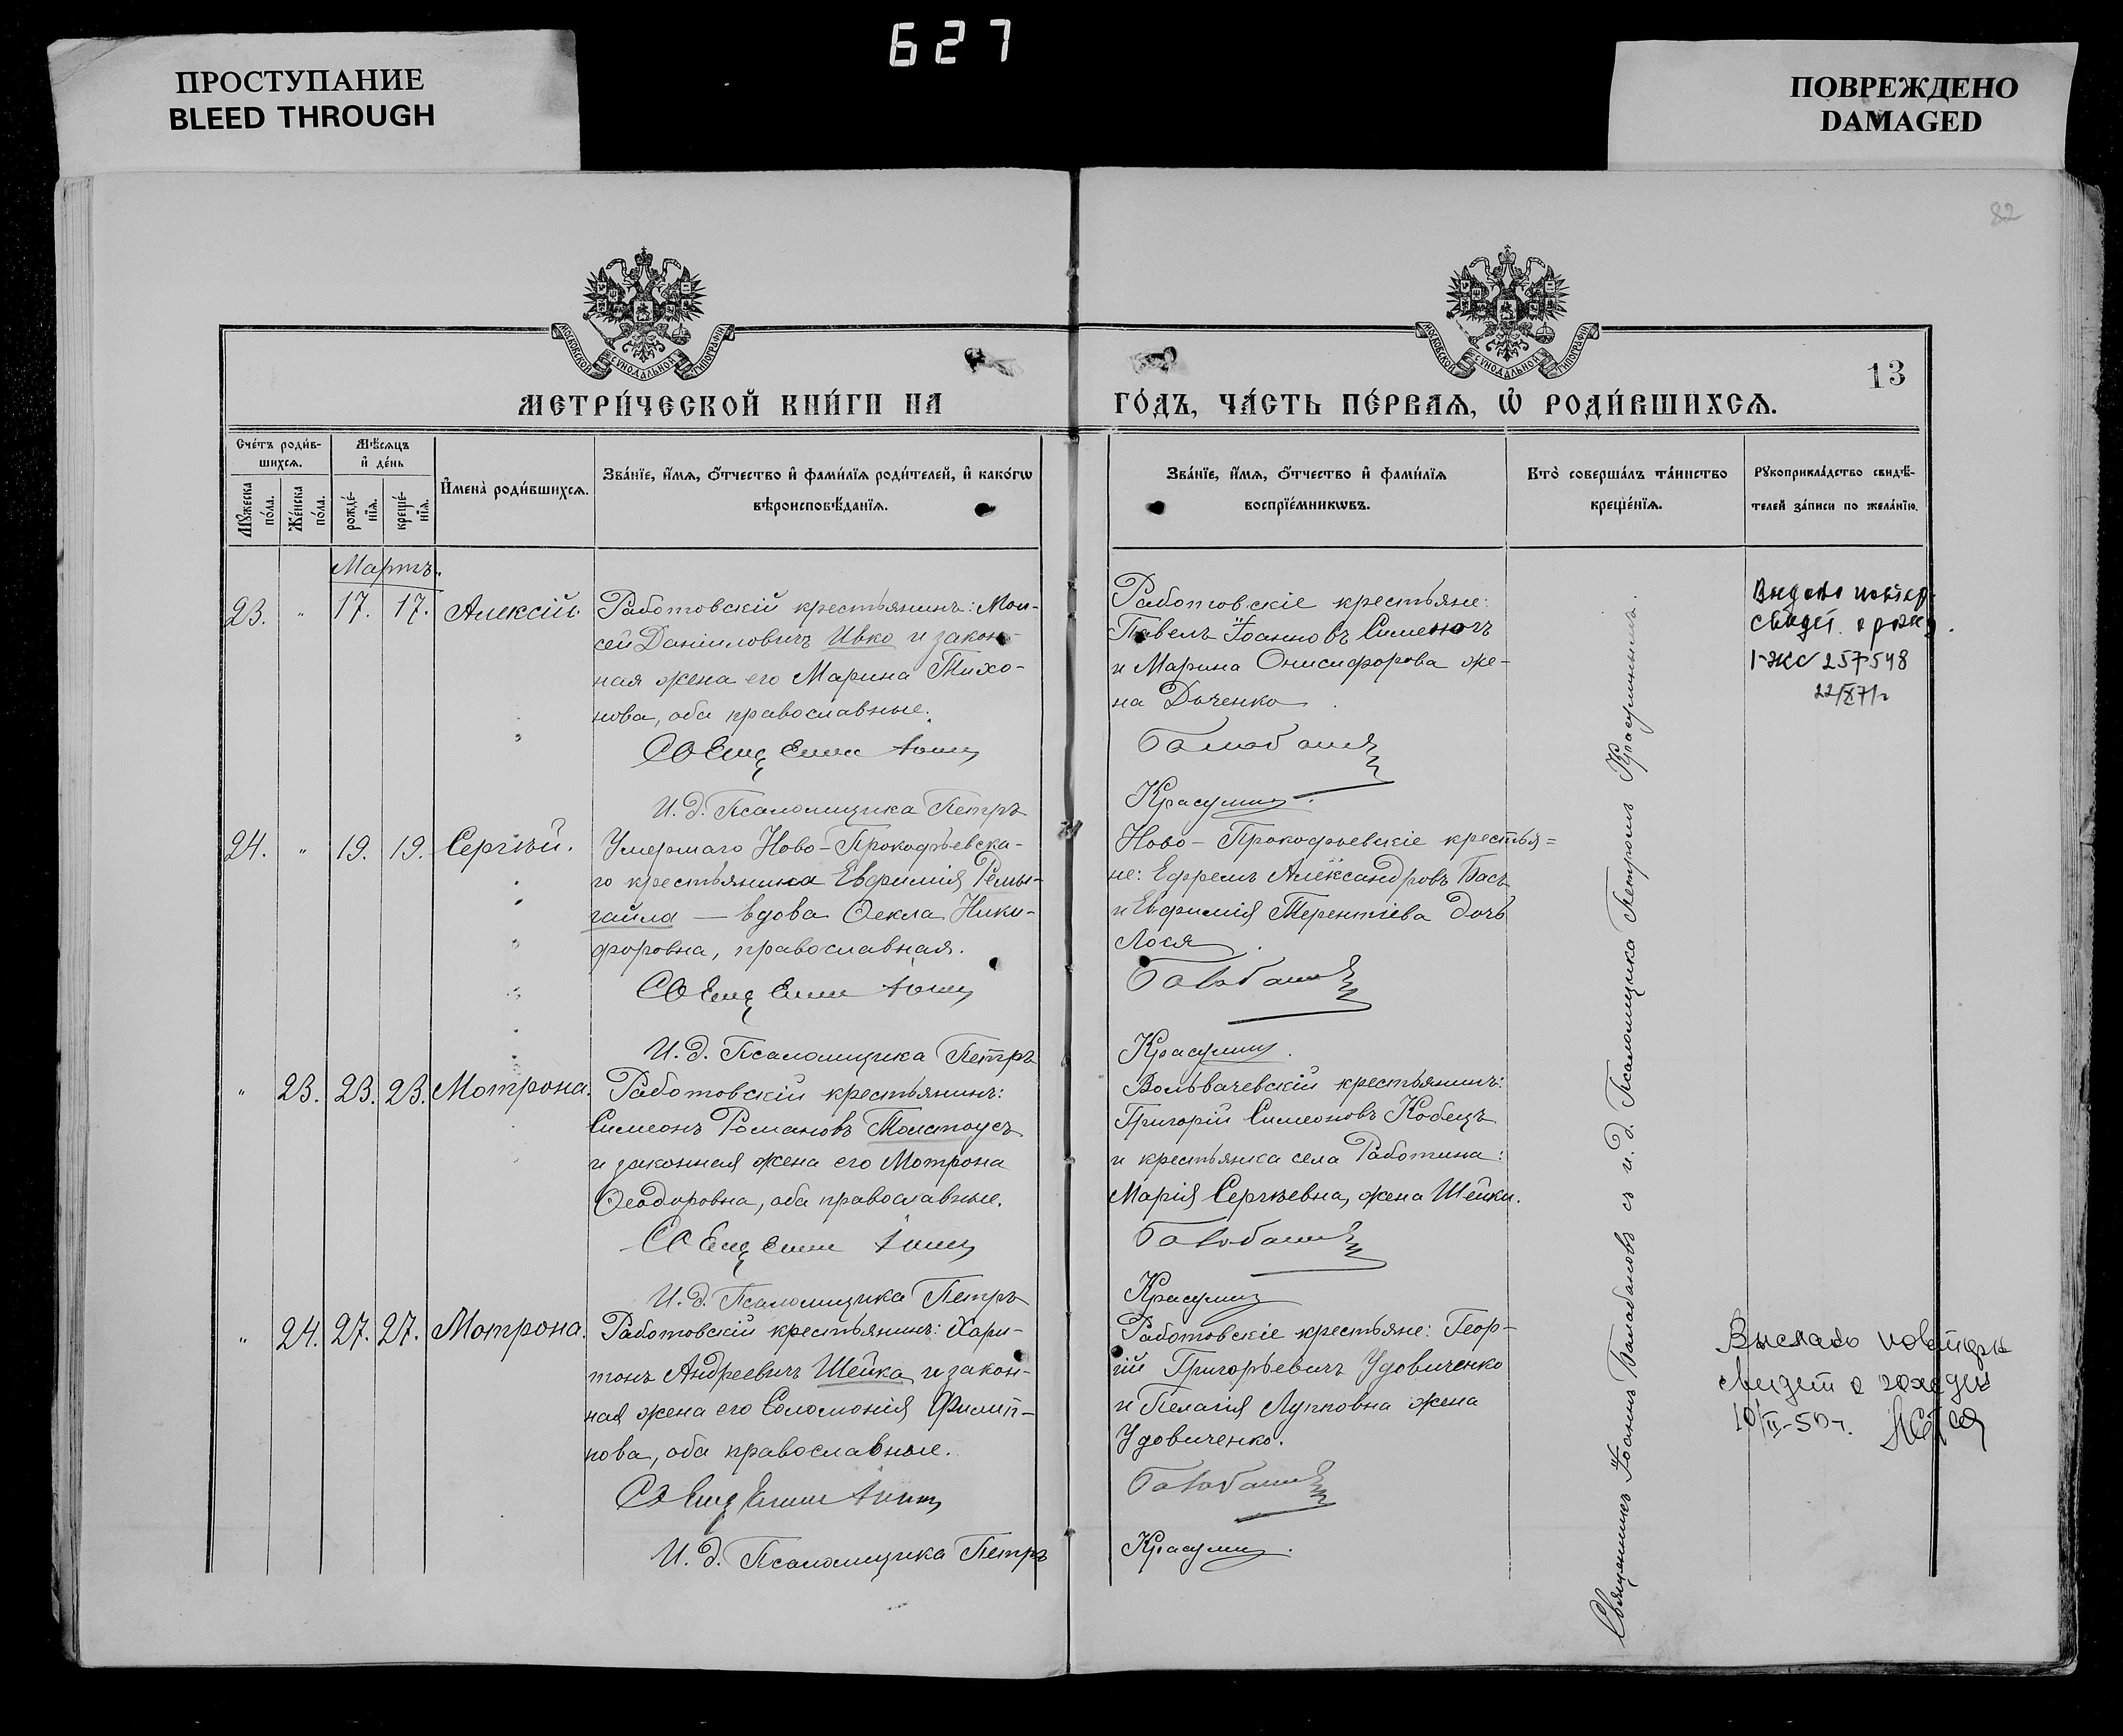 627
ПРОСТУПАНИЕ
BLEED THROUGH
ПОВРЕЖДЕНО
DAMAGED
82
МОСКОВСКОЙ СѴНОДАЛЬНОЙ ТИПОГРАФІИ
МОСКОВСКОЙ СѴНОДАЛЬНОЙ ТИПОГРАФІИ
13
МЕТРИ́ЧЕСКОЙ КНИ́ГИ НА
ГО́ДЪ, ЧА́СТЬ ПЕ́РВАѦ, Ѡ҆ РОДИ́ВШИХСѦ.
Сче́тъ роди́в-
шихсѧ.
Мꙋжеска
по́ла.
Же́нска
по́ла.
Мѣ́сѧцъ
и҆ де́нь
рожде́-
нїѧ.
креще́-
нїѧ.
И҆мена̀ роди́вшихсѧ.
Зва́нїе, и҆́мѧ, о҆́тчество и҆ фами́лїѧ роди́телей, и҆ како́гѡ
вѣроисповѣ́данїѧ.
Зва́нїе, и҆́мѧ, о҆́тчество и҆ фами́лїѧ
воспрїе́мникѡвъ.
Кто̀ соверша́лъ та́инство
креще́нїѧ.
Рꙋкоприкла́дство свидѣ́-
телей за́писи по жела́нїю.
Мартъ.
23. " 17. 17. Алексій.
Работовскій крестьянинъ: Мои-
сей Даніиловичъ Ивко и закон-
ная жена его Марина Тихо-
нова, оба православные.
И. д. Псаломщика Петръ
Работовскіе крестьяне:
Павелъ Іоанновъ
и Марина Онисифорова же-
на Дьченко
Балабановъ
Красулинъ.
свидет. о рожд.
257548
24. " 19. 19. Сергѣй.
Умершаго Ново-Прокофьевска-
го крестьянина Евфимія Ремы-
гайла — вдова Ѳекла Ники-
форовна, православная.
И. д. Псаломщика Петръ
Ново-Прокофьевскіе крестья=
не: Ефремъ Александровъ Басъ
и Евфимія Терентіева дочь
Лося
Балабановъ
Красулинъ.
" 23. 23. 23. Мотрона.
Работовскій крестьянинъ:
Симеонъ Романовъ Толстоусъ
и законная жена его Мотрона
Ѳеодоровна, оба православные.
И. д. Псаломщика Петръ
Вольвачевскій крестьянинъ:
Григорій Симеоновъ Кобецъ
и крестьянка села Работина:
Марія Сергѣевна, жена Шейки.
Балабановъ
Красулинъ
" 24. 27. 27. Мотрона.
Работовскій крестьянинъ: Хари-
тонъ Андреевичъ Шейка и закон-
ная жена его Соломонія Филип-
пова, оба православные.
И. д. Псаломщика Петръ
Работовскіе крестьяне: Геор-
гій Григорьевичъ Удовиченко
и Пелагія Лупповна жена
Удовиченко.
Балабановъ
Красулинъ.
Священникъ Іоаннъ Балабановъ съ и. д. Псаломщика Петромъ Красулинымъ.